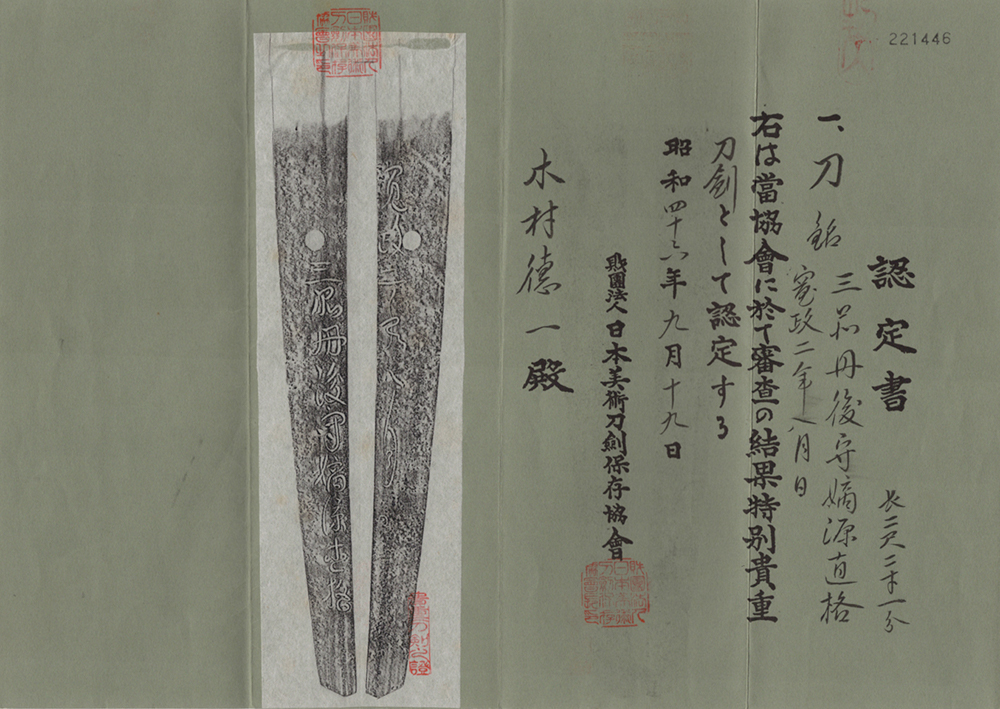 221446
認定書
一、刀 銘 三品丹後守嫡源直格
寛政二年八月日
長二尺二寸一分
右は當協會に於て審査の結果特別貴重
刀劍として認定する
昭和四十六年九月十九日
財團法人日本美術刀劍保存協會
木村德一殿
三品丹後守嫡源直格